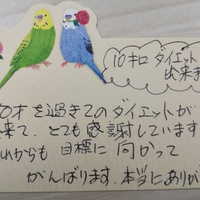 10キロ ダイエット
出来ま
0才を過ぎてのダイエットが
来て、とても感謝しています
いからも 目標に 向かって
がんばります。本当にありが